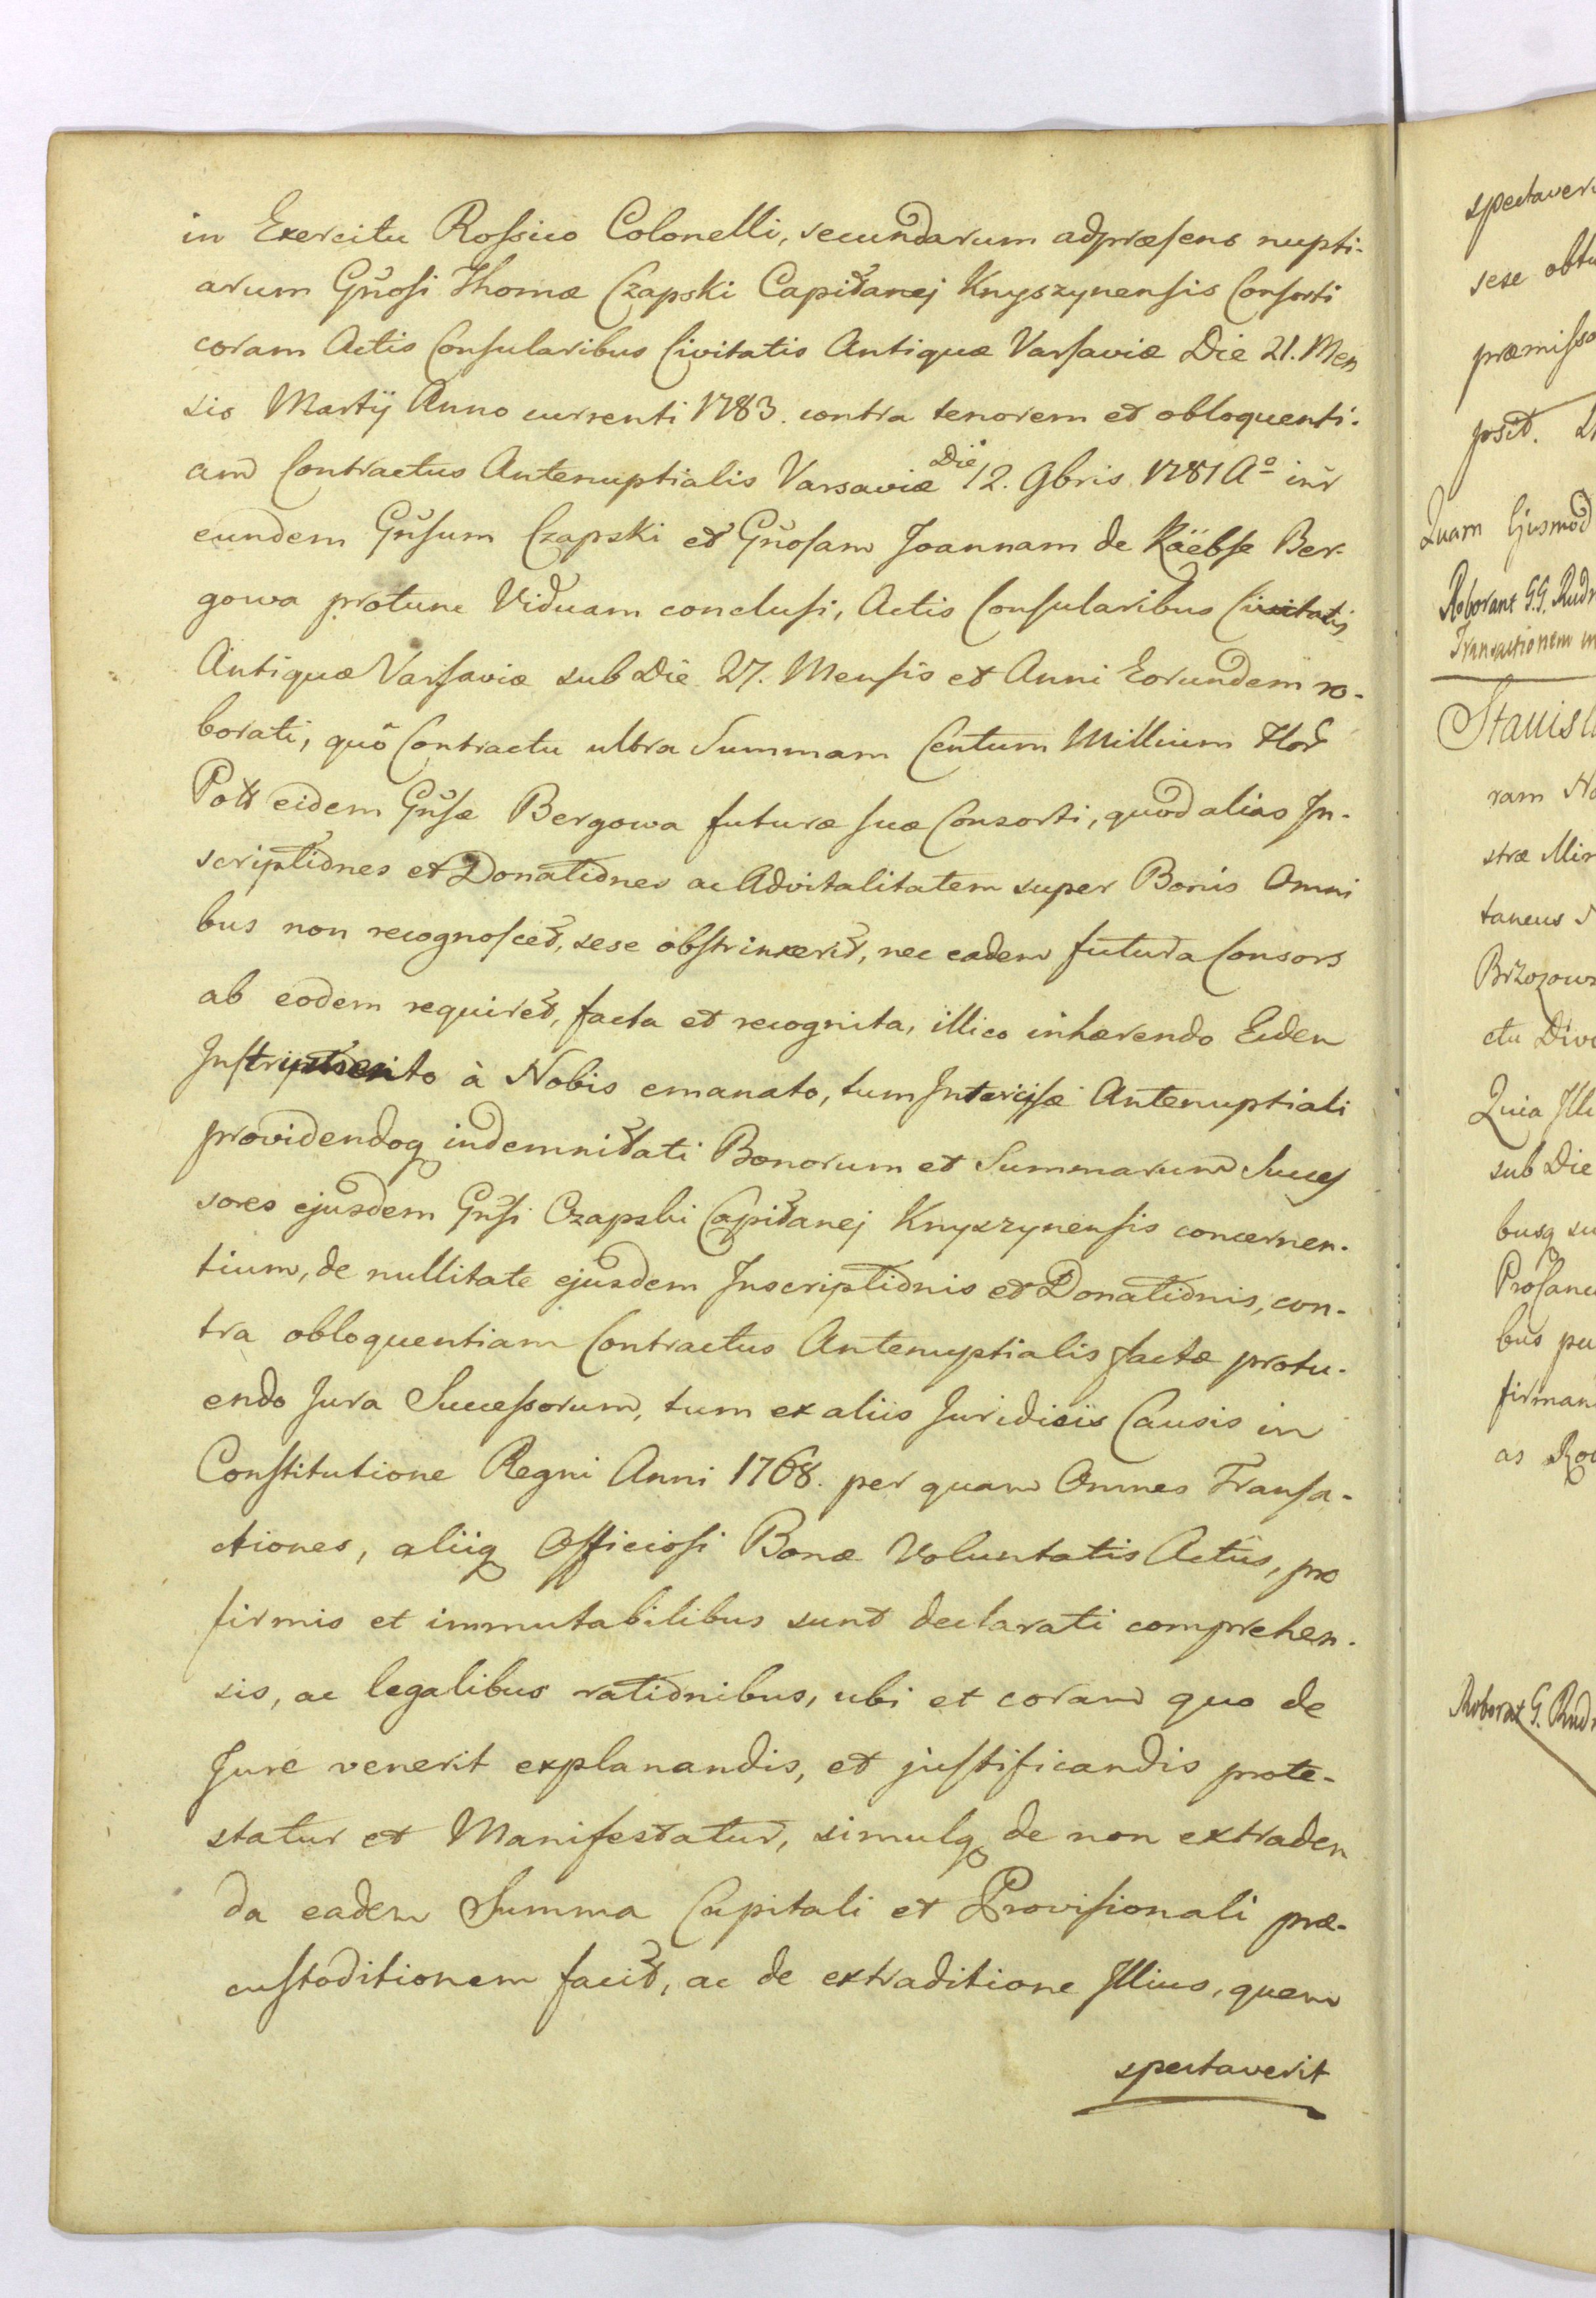 in Exercitu Rossico Colonelli, secundarum adpræsens nupti-
arum Gñosi Thomæ Czapski Capitanej Knyszynensis Consorti
coram Actis Consularibus Civitatis Antiquæ Varsaviæ Die 21. Men
sis Martij Anno currenti 1783. contra tenorem et obloquenti-
am Contractus Antenuptialis Varsaviæ Die 12. 9bris 1781 Aº inr̃
eundem Gñsum Czapski et Gñosam Joannam de Räebse Ber-
gowa protunc Viduam conclusi, Actis Consularibus Civitatis
Antiquæ Varsaviæ sub Die 27. Mensis et Anni Eorundem ro-
borati, quô Contractu ultra Summam Centum Millium Flor
Poll eidem Gñsæ Bergowa futuræ suæ Consorti, quod alias In-
scriptiones et Donationes ac Advitalitatem super Bonis Omni
bus non recognoscet, sese obstrinxerit, nec eadem futura Consors
ab eodem requiret, facta et recognita, illico inhærendo Eidem
à Nobis emanato, tum Intercisæ Antenuptiali
providendoq indemnitati Bonorum et Summarum Succes
sores ejusdem Gñsi Czapski Capitanej Knyszynensis concernen-
tium, de nullitate ejusdem Inscriptionis et Donationis, con-
tra obloquentiam Contractus Antenuptialis factæ protu-
endo Jura Successorum, tum ex aliis Juridicis Causis in
Constitutione Regni Anni 1768. per quam Omnes Transa-
ctiones, aliiq Officiosi Bonæ Voluntatis Actûs, pro
firmis et immutabilibus sunt declarati comprehen-
sis, ac legalibus rationibus, ubi et coram quo de
Jure venerit explanandis, et justificandis prote-
statur et Manifestatur, simulq de non extraden
da eadem Summa Capitali et Provisionali præ-
custoditionem facit, ac de extraditione Illius, quem
spectaverit
sese
præmisso
posit.
Quam Ejusmod
Roborant G.G. Rudn
Transactionem in
Stanisl
ram No
stræ Mir
taneus
Brzozows
ctu Divi
Quia Ill
sub Die
busq su
bus pu
firman
Roborat G. Rudn